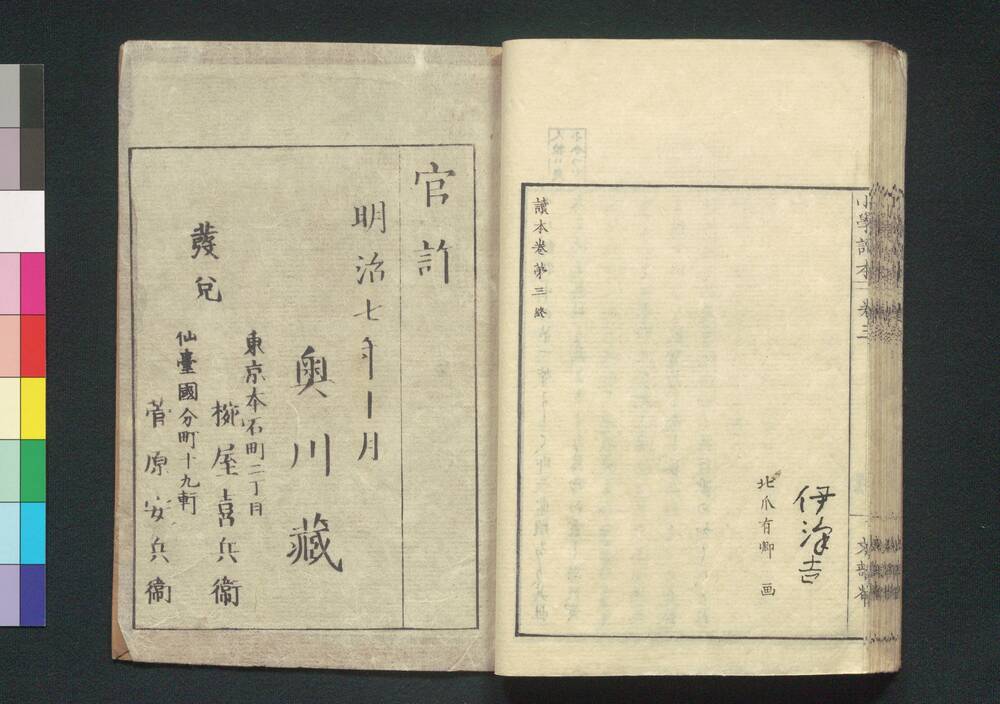 小學讀本 卷三
文部省
伊澤吉
北爪有卿 画
讀本卷第三終
官許
明治七年十月
奧川藏
東京本石町二丁目
椀屋喜兵衞
發兌
仙臺國分町十九軒
菅原安兵衞